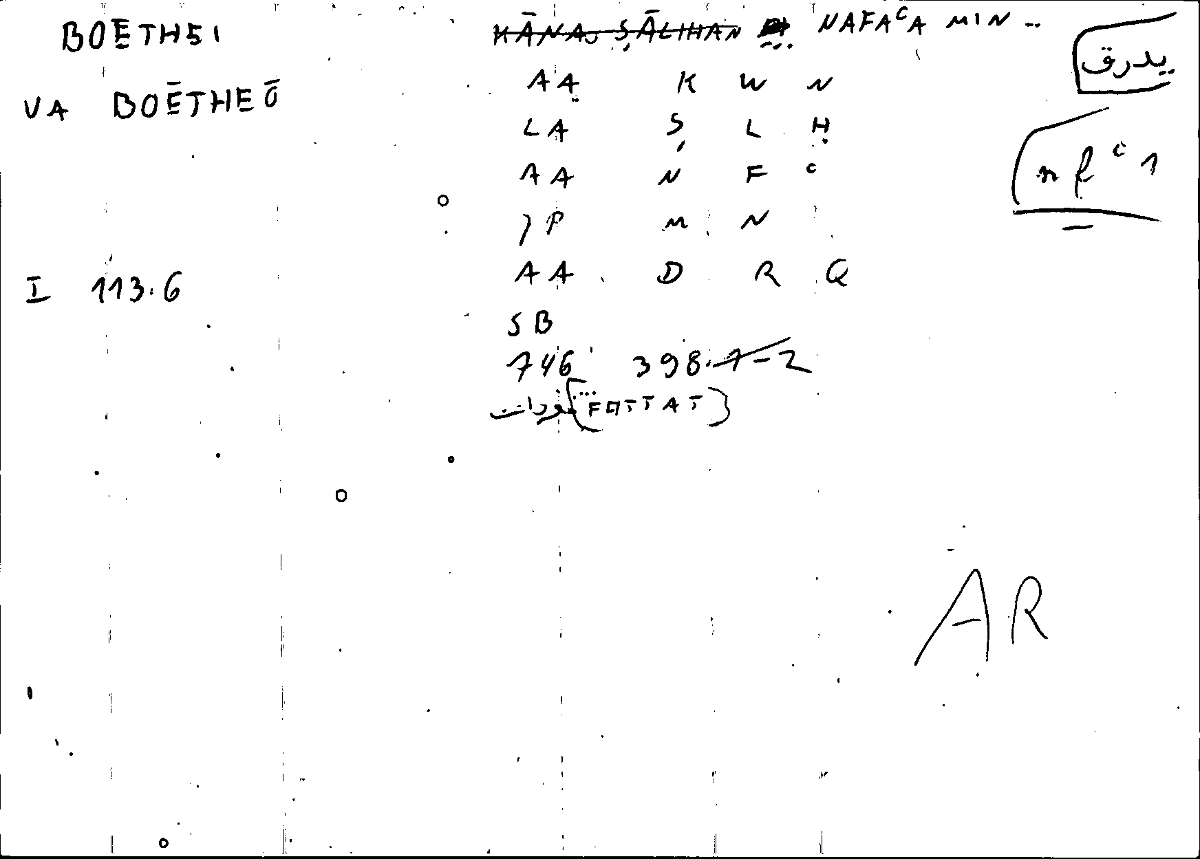 BOETHEI
VA BOĒTHEŌ
I 113.6
KĀNA ṢĀLIḤAN NAFAᶜA MIN ..
AA K W N
LA Ṣ L Ḥ
AA N F ᶜ
)P M N
AA D R Q
SB
746 398.1-2
[FOTTAT]
يدرق
nfᶜ 1
AR